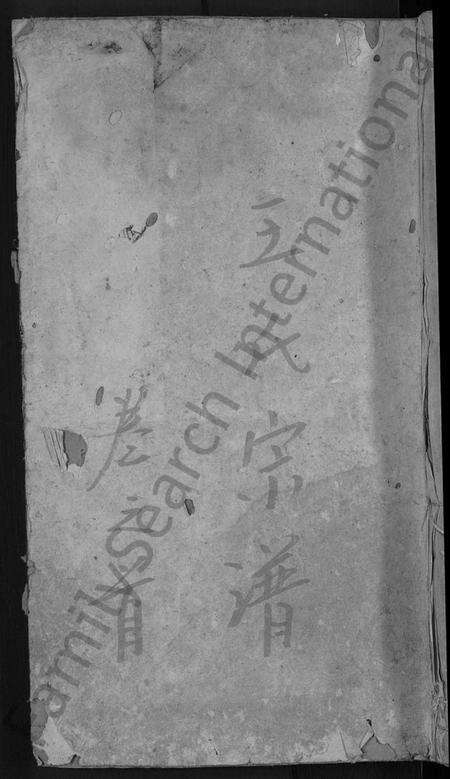 氏宗谱
卷之首
FamilySearch International